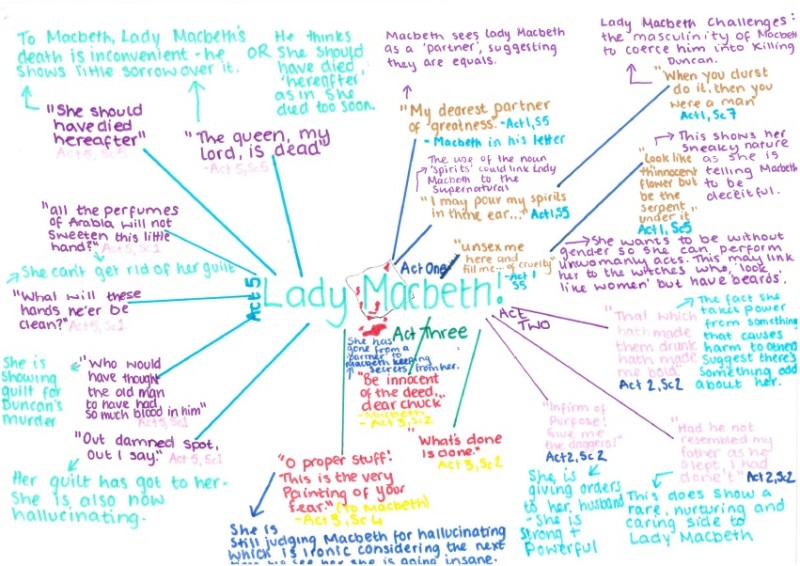 To Macbeth, Lady Macbeth's
death is inconvenient - he
shows little sorrow over it.
OR
He thinks
she should
have died
'hereafter'
as in she
died too soon.
"She should
have died
hereafter"
Act 5, Sc5
"The queen, my
lord, is dead"
- Act 5, Sc5
"all the perfumes
of Arabia will not
sweeten this little
hand?" Act 5, Sc1
She can't get rid of her guilt
"What will these
hands ne'er be
clean?" Act 5, Sc1
She is
showing
guilt for
Duncan's
murder
"Who would
have thought
the old man
to have had
so much blood in him"
Act 5, Sc1
"Out damned spot,
out I say." Act 5, Sc1
Her guilt has got to her-
She is also now
hallucinating.
Act 5
Lady Macbeth!
Macbeth sees Lady Macbeth
as a 'partner', suggesting
they are equals.
"My dearest partner
of greatness." - Act 1, S5
- Macbeth in his letter
The use of the noun
'spirits' could link Lady
Macbeth to the
Supernatural
"I may pour my spirits
in thine ear..." Act 1, S5
"unsex me
here and
fill me... of cruelty"
- Act 1
S5
Act One
Lady Macbeth Challenges
the masculinity of Macbeth
to coerce him into Killing
Duncan.
"When you durst
do it, then you
were a man"
Act 1, Sc7
This shows her
sneaky nature
as she is
telling Macbeth
to be
deceitful.
"Look like
th'innocent
flower but
be the
serpent
under it
Act 1, Sc5
She wants to be without
gender so she can perform
unwomanly acts. This may link
her to the witches who, 'look
like women' but have beards.
Act
Two
"That which
hath made
them drunk
hath made
me bold"
Act 2, Sc2
The fact she
takes power
from something
that causes
harm to others
suggest there's
something odd
about her.
"Infirm of
Purpose!
Give me
the daggers!"
Act 2, Sc2
She is
giving orders
to her husband
- She is
strong +
Powerful
"Had he not
resembled my
father as he
slept, I had
done't" Act 2, Sc2
This does show a
rare, nurturing and
caring side to
Lady Macbeth
Act Three
She has
gone from a
'partner' to
Macbeth keeping
secrets from her.
"Be innocent
of the deed,..
dear chuck"
- Macbeth
- Act 3, Sc2
"What's done
is done."
Act 3, Sc2
"O proper stuff!
This is the very
Painting of your
fear." (To Macbeth)
- Act 3, Sc4
She is
still judging Macbeth for hallucinating
which is ironic considering the next
time we see her she is going insane.